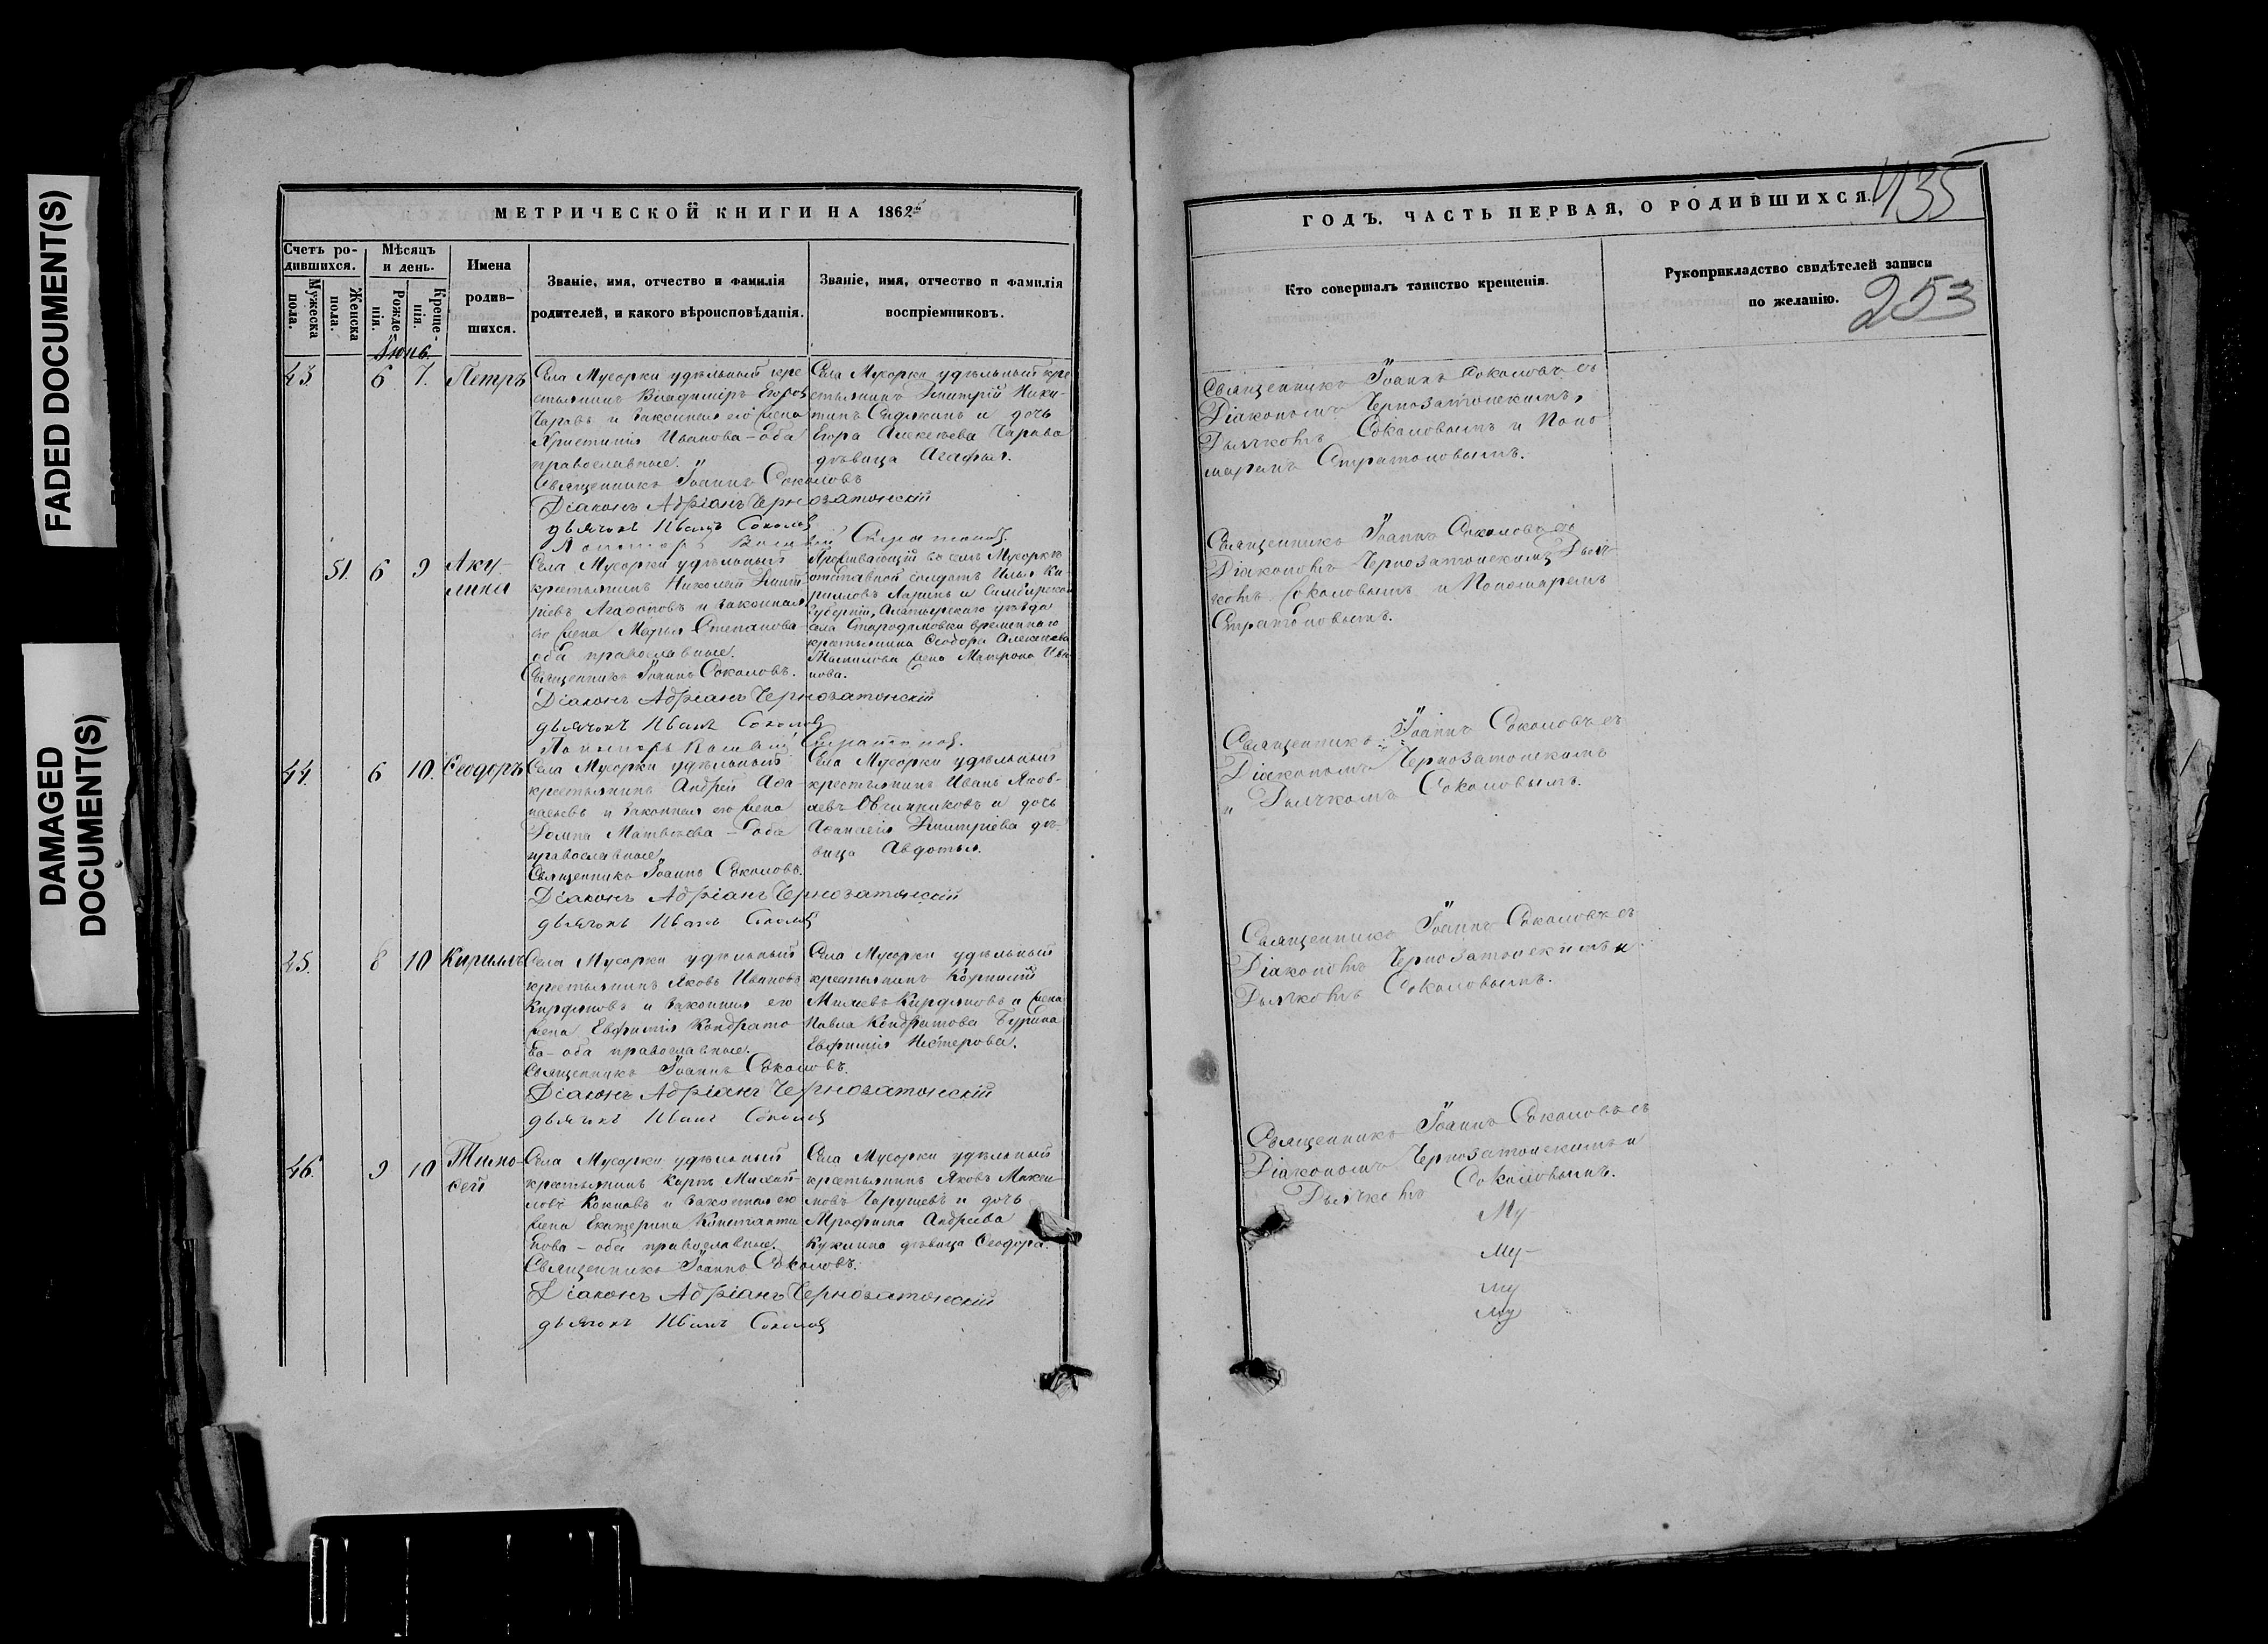 FADED DOCUMENT(S)
DAMAGED
DOCUMENT(S)
МЕТРИЧЕСКОЙ КНИГИ НА 1862й
Счетъ ро-
дившихся.
Мужеска
пола.
Женска
пола.
Мѣсяцъ
и день.
Рожде-
нія.
Креще-
нія.
Имена
родив-
шихся.
Званіе, имя, отчество и фамилія
родителей, и какого вѣроисповѣданія.
Званіе, имя, отчество и фамилія
воспріемниковъ.
Іюнь.
43 6 7. Петръ
Села Мусорки удѣльный кре
стьянинъ Владиміръ Егоровъ
и законная его жена
Христинія Иванова - оба
православные.
Священникъ Іоаннъ Соколовъ
Діаконъ Адріанъ Чернозатонскій
дьячокъ Иванъ Соколовъ
Села Мусорки удѣльный кре
стьянинъ Димитрій Ники-
тинъ и дочь
Егора Алексѣева
дѣвица Агафья.
51. 6 9 Аку-
лина
Села Мусорки удѣльный
крестьянинъ Николай Димит
ріевъ Агафоновъ и законная
его жена Марья Степанова
оба православные.
Священникъ Іоаннъ Соколовъ.
Діаконъ Адріанъ Чернозатонскій
дьячокъ Иванъ Соколовъ
Пономарь Стратоновъ.
Проживающій въ селѣ Мусоркѣ
отставной солдатъ Илья Ки
рилловъ Ларинъ и Симбирской
губерніи, Алатырскаго уѣзда
села временнаго
крестьянина Ѳеодора Алексѣева
жена Матрона Ива
нова.
44. 6 10. Ѳеодоръ
Села Мусорки удѣльный
крестьянинъ Андрей
и законная его жена
Домна Матвѣева - оба
православные.
Священникъ Іоаннъ Соколовъ.
Діаконъ Адріанъ Чернозатонскій
дьячокъ Иванъ Соколовъ
Села Мусорки удѣльный
крестьянинъ Иванъ Яков-
левъ Овчинниковъ и дочь
Аѳанасія Димитріева дѣ-
вица Авдотья.
45. 8 10 Кириллъ
Села Мусорки удѣльный
крестьянинъ Яковъ Ивановъ
Кирдяновъ и законная его
жена Евфимія Кондрато
ва - оба православные.
Священникъ Іоаннъ Соколовъ.
Діаконъ Адріанъ Чернозатонскій
дьячокъ Иванъ Соколовъ
Села Мусорки удѣльный
крестьянинъ Корнилій
Кирдяновъ и жена
Павла Кондратова Бурина
Евфимія Нестерова.
46. 9 10 Тимо-
ѳей
Села Мусорки удѣльный
крестьянинъ Карпъ Михай-
ловъ и законная его
жена Екатерина Константи
нова - оба православные.
Священникъ Іоаннъ Соколовъ.
Діаконъ Адріанъ Чернозатонскій
дьячокъ Иванъ Соколовъ
Села Мусорки удѣльный
крестьянинъ Яковъ Макси-
мовъ и дочь
Трофима Андреева
Куклина дѣвица Ѳеодора.
ГОДЪ. ЧАСТЬ ПЕРВАЯ, О РОДИВШИХСЯ.
435
Кто совершалъ таинство крещенія.
Рукоприкладство свидѣтелей записи
по желанію.
253
Священникъ Іоаннъ Соколовъ съ
Діакономъ Чернозатонскимъ,
Дьячкомъ Соколовымъ и Поно
маремъ Стратоновымъ.
Священникъ Іоаннъ Соколовъ съ
Діакономъ Чернозатонскимъ Дьяч-
комъ Соколовымъ и Пономаремъ
Стратоновымъ.
Священникъ Іоаннъ Соколовъ съ
Діакономъ Чернозатонскимъ
и Дьячкомъ Соколовымъ.
Священникъ Іоаннъ Соколовъ съ
Діакономъ Чернозатонскимъ и
Дьячкомъ Соколовымъ.
Священникъ Іоаннъ Соколовъ съ
Діакономъ Чернозатонскимъ и
Дьячкомъ Соколовымъ.
Му
Му
му
Му